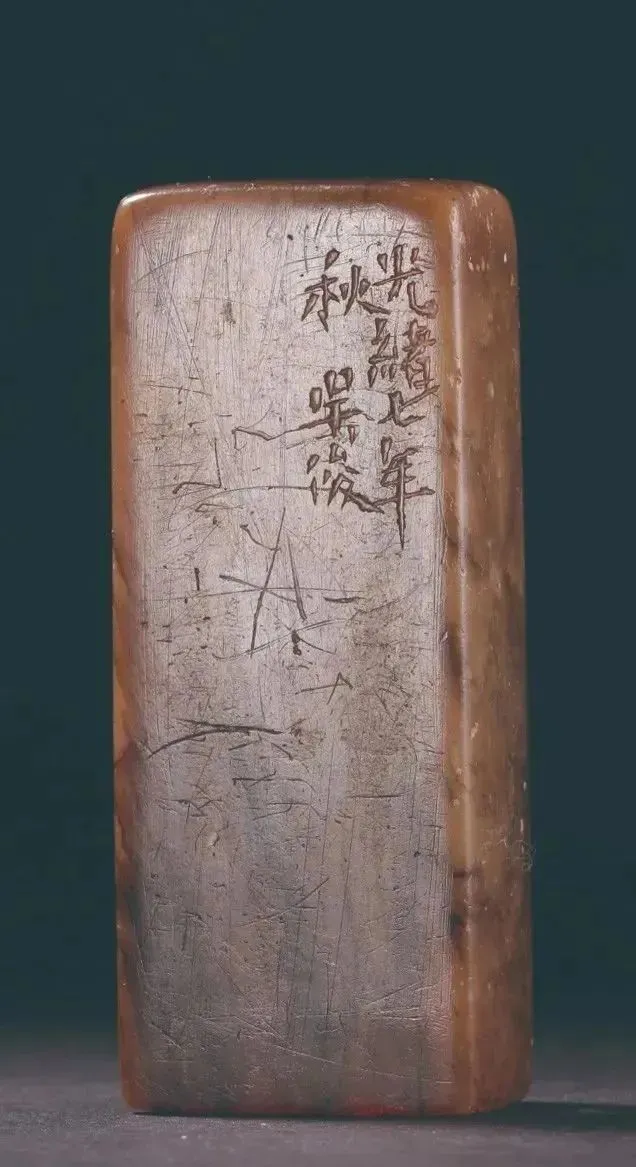 光緒七年
秋 吴俊